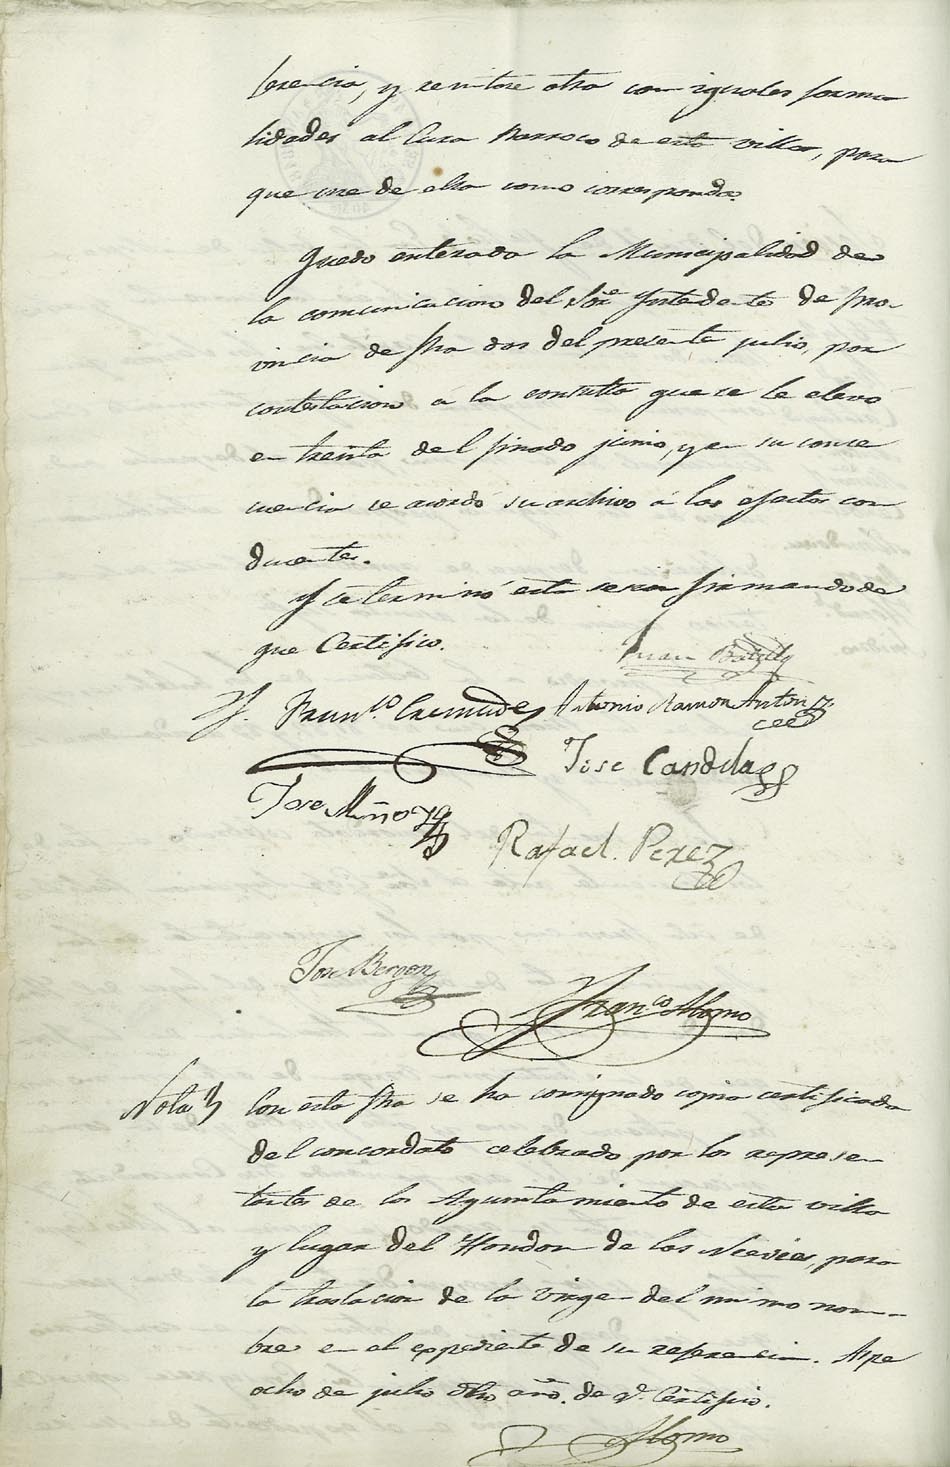 ferencia, y remitase otra con iguales forma
lidades al Cura Parroco de esta villa, para
que use de ella como corresponda.
Quedo enterada la Municipalidad de
la comunicacion del Sor. Yntendente de pro-
vincia de fha dos del presente julio, por
contestacion á la consulta que se le elevó
en treinta del finado junio, y en su conse
cuencia se acordó su archivo á los efectos con
ducentes.
Y se terminó esta sesion firmando de
que Certifico.
Juan Botella
Franco. Cremades
Antonio Ramon Anton
Jose Candela
Jose Miño
Rafael Perez
Jose Bergon
Franco Alonso
Nota
Con esta fha se ha consignado copia certificada
del concordato celebrado por los represen-
tantes de los Ayuntamiento de esta villa
y lugar del Hondon de las Nieves, para
la traslacion de la virgen del mismo nom-
bre en el expediente de su referencia. Aspe
ocho de julio dho año. de q. Certifico.
Alonso